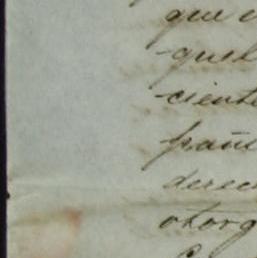 que
quel
ciente
pañe
derec
otorg